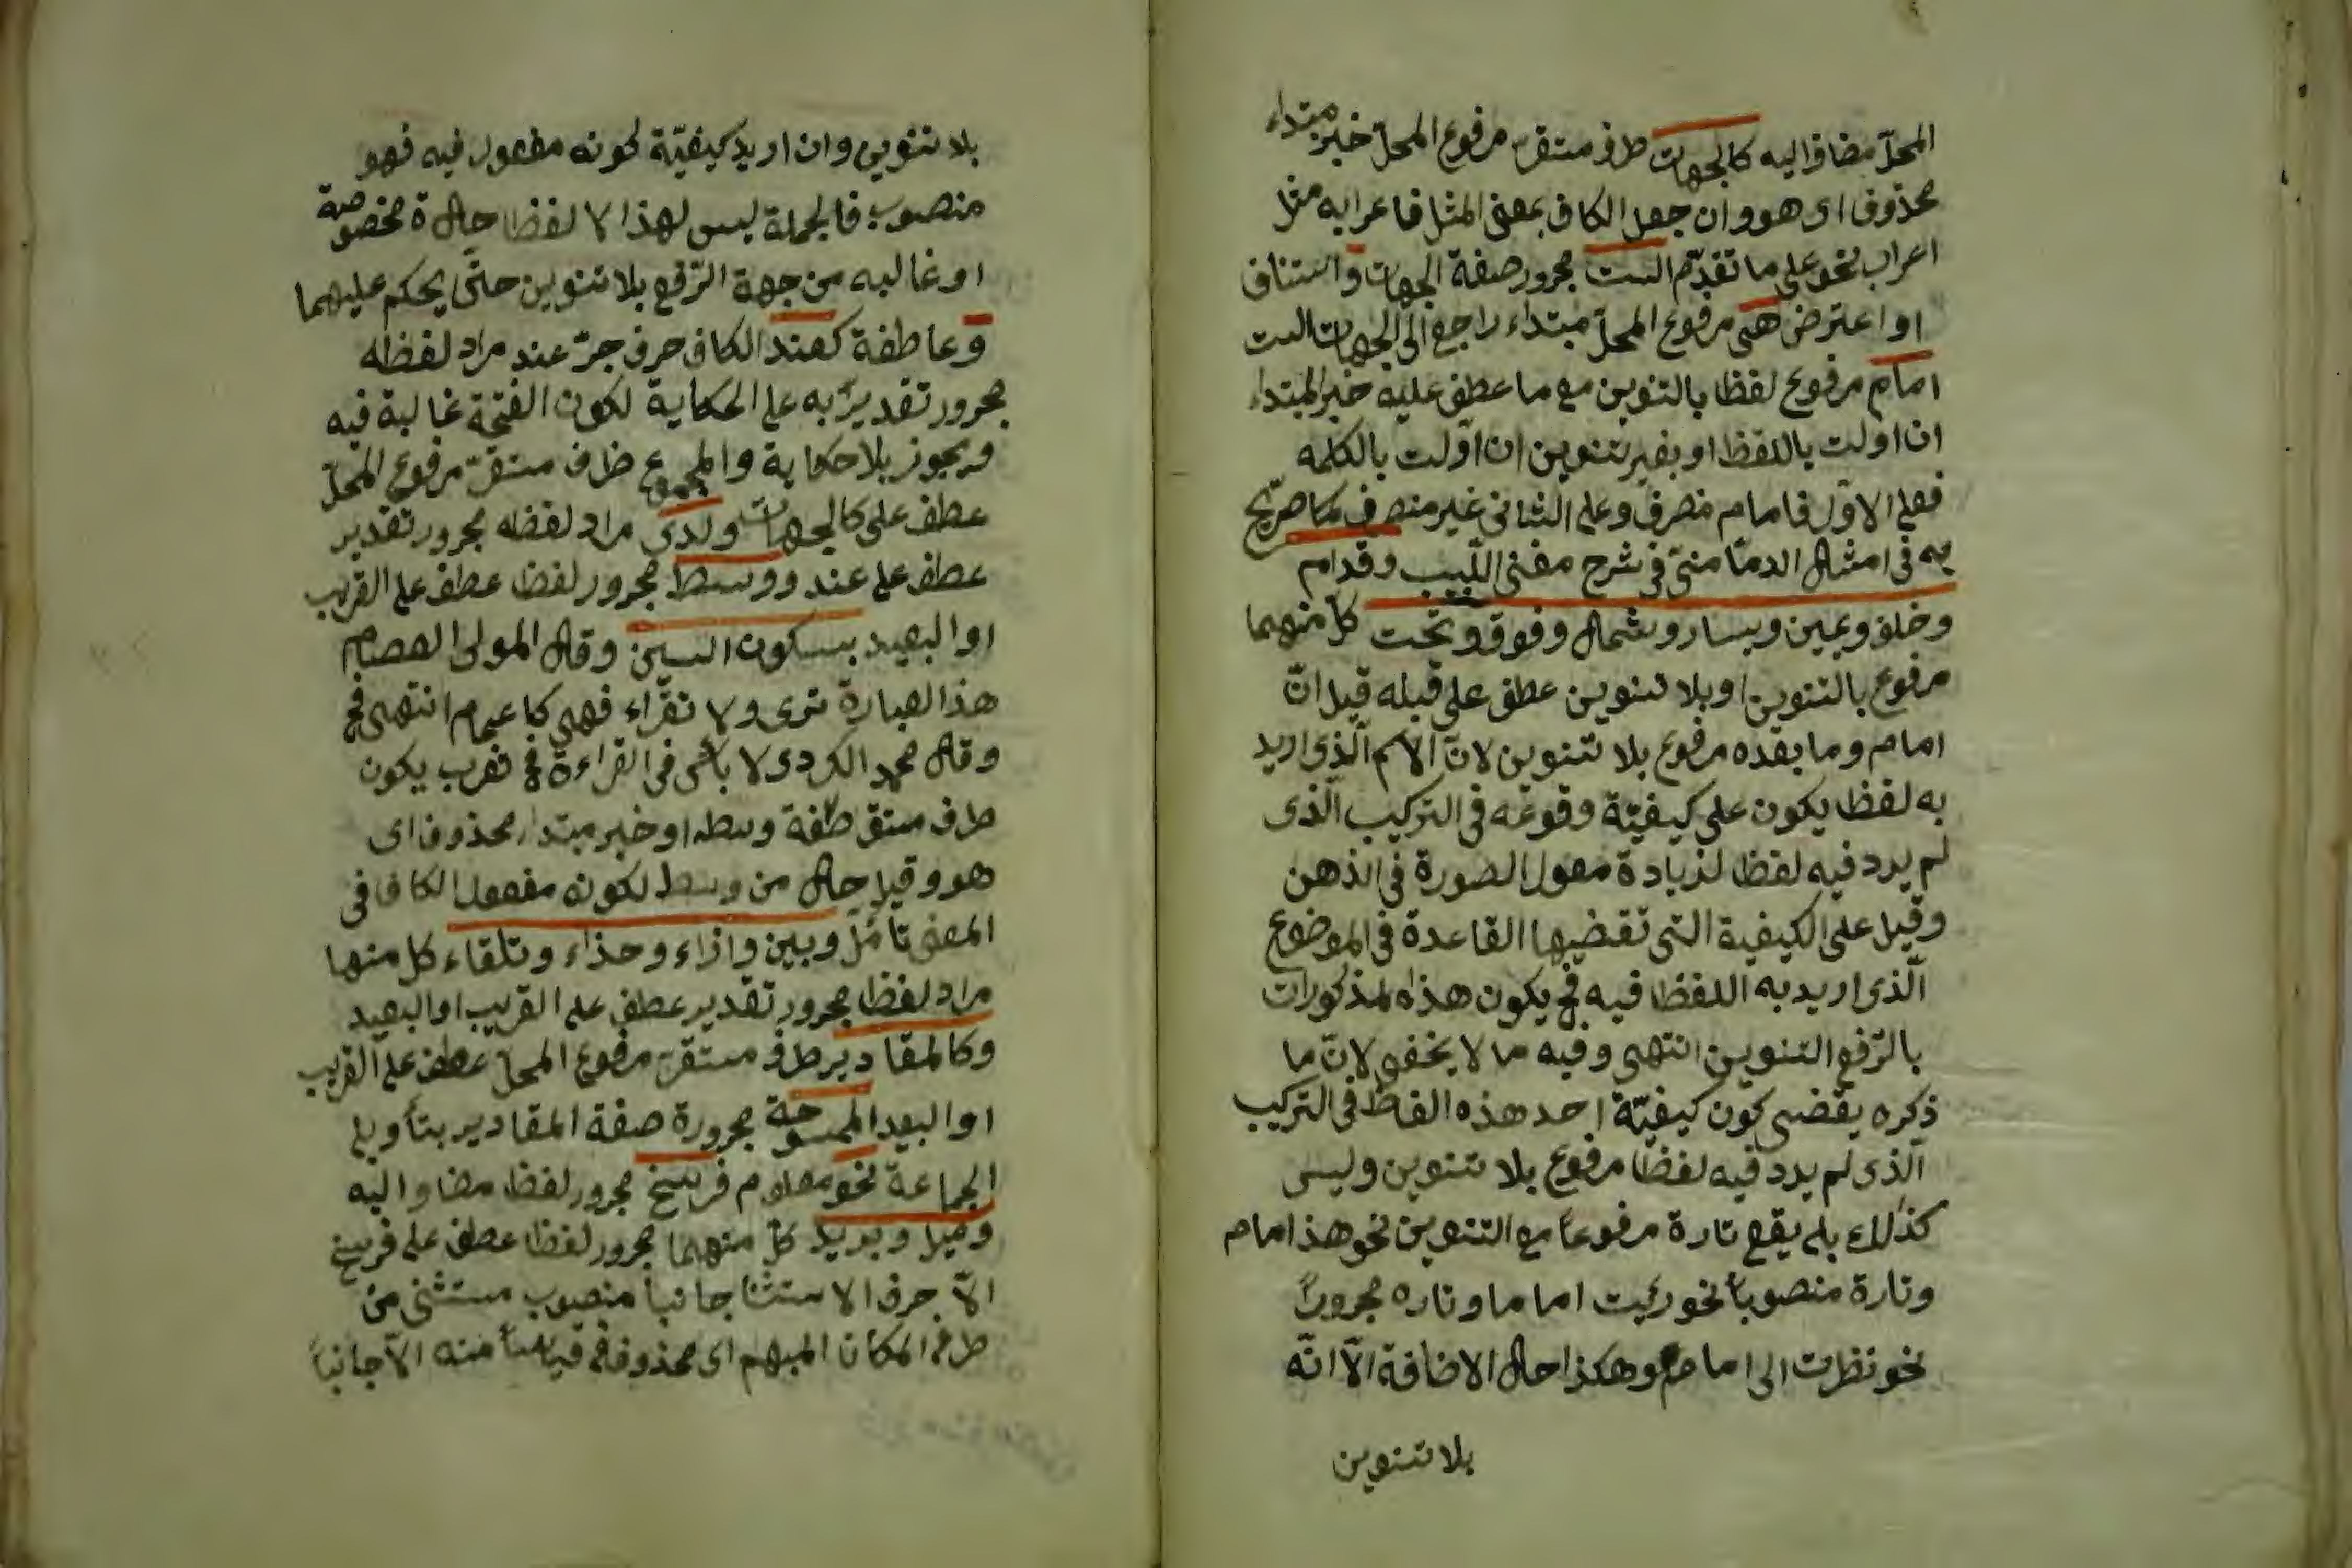 المحلّ مضاف اليه كالجهات ظرف مستقرّ مرفوع المحلّ خبر مبتداء
محذوف اى هو وان جعل الكاف بمعنى المثل فاعرابه مثل
اعراب نحو على ما تقدّم الست مجرور صفة الجهات واستناف
او اعترض هى مرفوع المحلّ مبتداء راجع الى الجهات الست
امام مرفوع لفظا بالتنوين مع ما عطف عليه خبر المبتداء
ان اولت باللفظ او بغير تنوين ان اوّلت بالكلمه
فعلى الاوّل فامام منصرف وعلى الثانى غير منصرف كما صرّح
به فى امثال الدمّامنىّ فى شرح مغنى اللّبيب وقدام
وخلف ويمين ويسار وشمال وفوق وتحت كلّ منهما
مرفوع بالتنوين او بلا تنوين عطف على قبله قيل انّ
امام وما بعده مرفوع بلا تنوين لانّ الاسم الّذى اريد
به لفظا يكون على كيفيّة وقوعه فى التركيب الّذى
لم يرد فيه لفظا لزيادة معول الصورة فى الذهن
وقيل على الكيفية التى تقتضيها القاعدة فى الموضوع
الّذى اريد به اللفظ فيه فح يكون هذه المذكورات
بالرّفع التنوين انتهى وفيه ما لا يخفى لانّ ما
ذكره يقتضى كون كيفيّة احد هذه الفاظ فى التركيب
الّذى لم يرد فيه لفظا مرفوع بلا تنوين وليس
كذلك بل يقع تارة مرفوعاً مع التنوين نحو هذا امام
وتارة منصوباً نحو رئيت اماما وتاره مجروراً
نحو نظرت الى امام وهكذا حال الاضافة الّا انّه
بلا تنوين
بلا تنوين وان اريد كيفيّة لكونه مفعول فيه فهو
منصوب فالجملة ليس لهذا الا لفظا حالة مخصوصة
او غالبه من جهة الرّفع بلا تنوين حتّى يحكم عليهما
وعاطفة كعند الكاف حرف جرّ عند مراد لفظه
مجرور تقديرً به على الحكاية لكون الفتحة غالبة فيه
ويجوز بلا حكاية والمجموع ظرف مستقرّ مرفوع المحلّ
عطف على كالجهات ولدى مراد لفظه مجرور تقدير
عطف على عند ووسط مجرور لفظا عطف على القريب
او البعيد بسكون السين وقال المولى العصام
هذا العبارة ترى ولا تقراء فهى كاعمام انتهى فح
وقال محمد الكردى لا بأس فى القراءة فح تعرب يكون
ظرف مستقر صفة وسط او خبر مبتداء محذوف اى
هو وقيل حال من وسط لكونه مفعول الكاف فى
المعنى تأمّل وبين وازاء وحذاء وتلقاء كل منها
مراد لفظا مجرور تقدير عطف على القريب او البعيد
وكالمقادير ظرف مستقرّ مرفوع المحلّ عطف على القريب
او البعيد الممسوحة مجرورة صفة المقادير بتأويل
الجماعة نحو معلوم فرسخ مجرور لفظا مضاف اليه
وميل وبريد كلّ منهما مجرور لفظا عطف على فرسخ
الّا حرف الاستثنا جانباً منصوب مستثنى من
المكان المبهم اى محذوف منه الّا جانباً